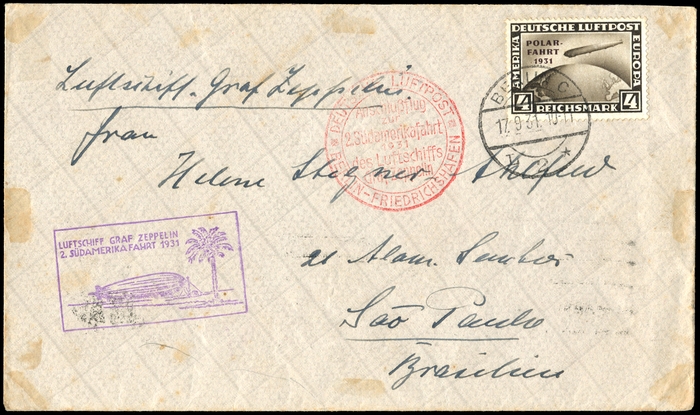 DEUTSCHE LUFTPOST
AMERIKA
EUROPA
POLAR-
FAHRT
1931
4 REICHSMARK 4
BERLIN C
17.9.31. 10-11
Luftschiff "Graf Zeppelin"
DEUTSCHE LUFTPOST
Anschlußflug
zur
2. Südamerikafahrt
1931
des Luftschiffs
BERLIN-FRIEDRICHSHAFEN
Frau
Helene Stegner
LUFTSCHIFF GRAF ZEPPELIN
2. SÜDAMERIKAFAHRT 1931
21 Alam.
São Paulo
Brasilien